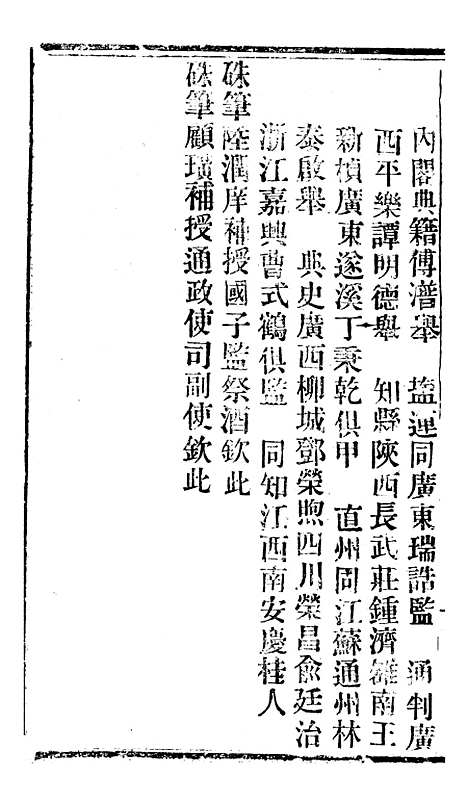 內閣典籍傅潽舉　鹽運同廣東瑞誥監　通判廣
西平樂譚明德舉　知縣陝西長武莊鍾濟雒南王
新楨廣東遂溪丁秉乾俱甲　直州同江蘇通州林
泰啟舉　典史廣西柳城鄧榮煦四川榮昌俞廷治
浙江嘉興曹式鶴俱監　同知江西南安慶桂人
硃筆陸潤庠補授國子監祭酒欽此
硃筆顧璜補授通政使司副使欽此